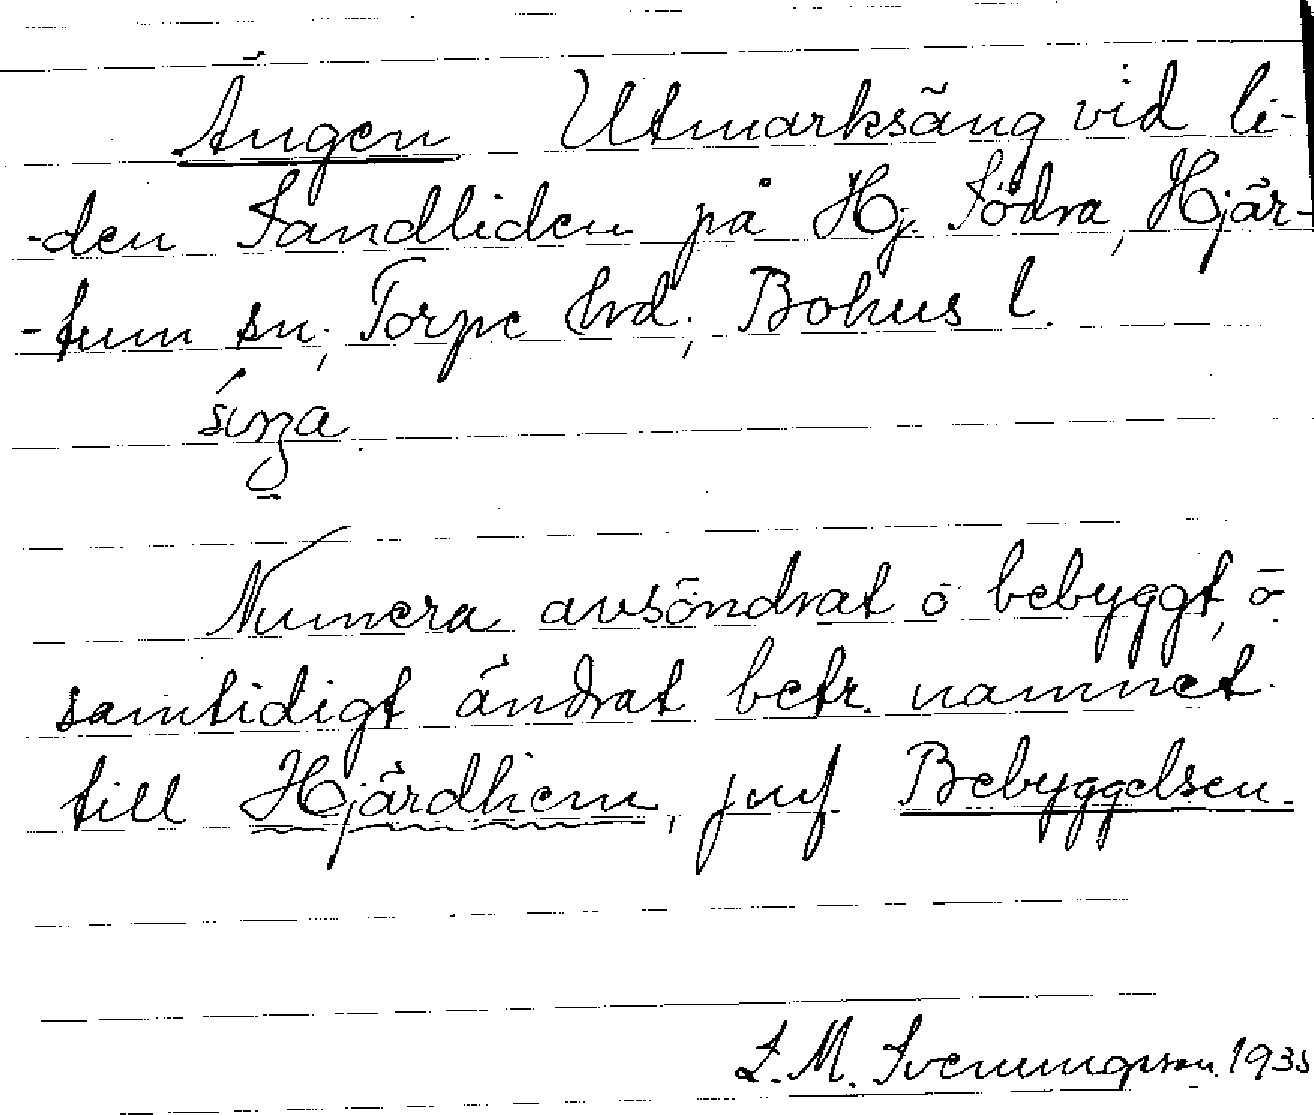 Ängen Utmarksäng vid li-
-den Sandliden på Hj. Södra, Hjär-
-tum sn; Torpe hrd; Bohus l.
Numera avsöndrat o bebyggt, o
samtidigt ändrat betr. namnet
till Hjärdhem, jmf. Bebyggelsen.
L. M. Svenungsson 1935